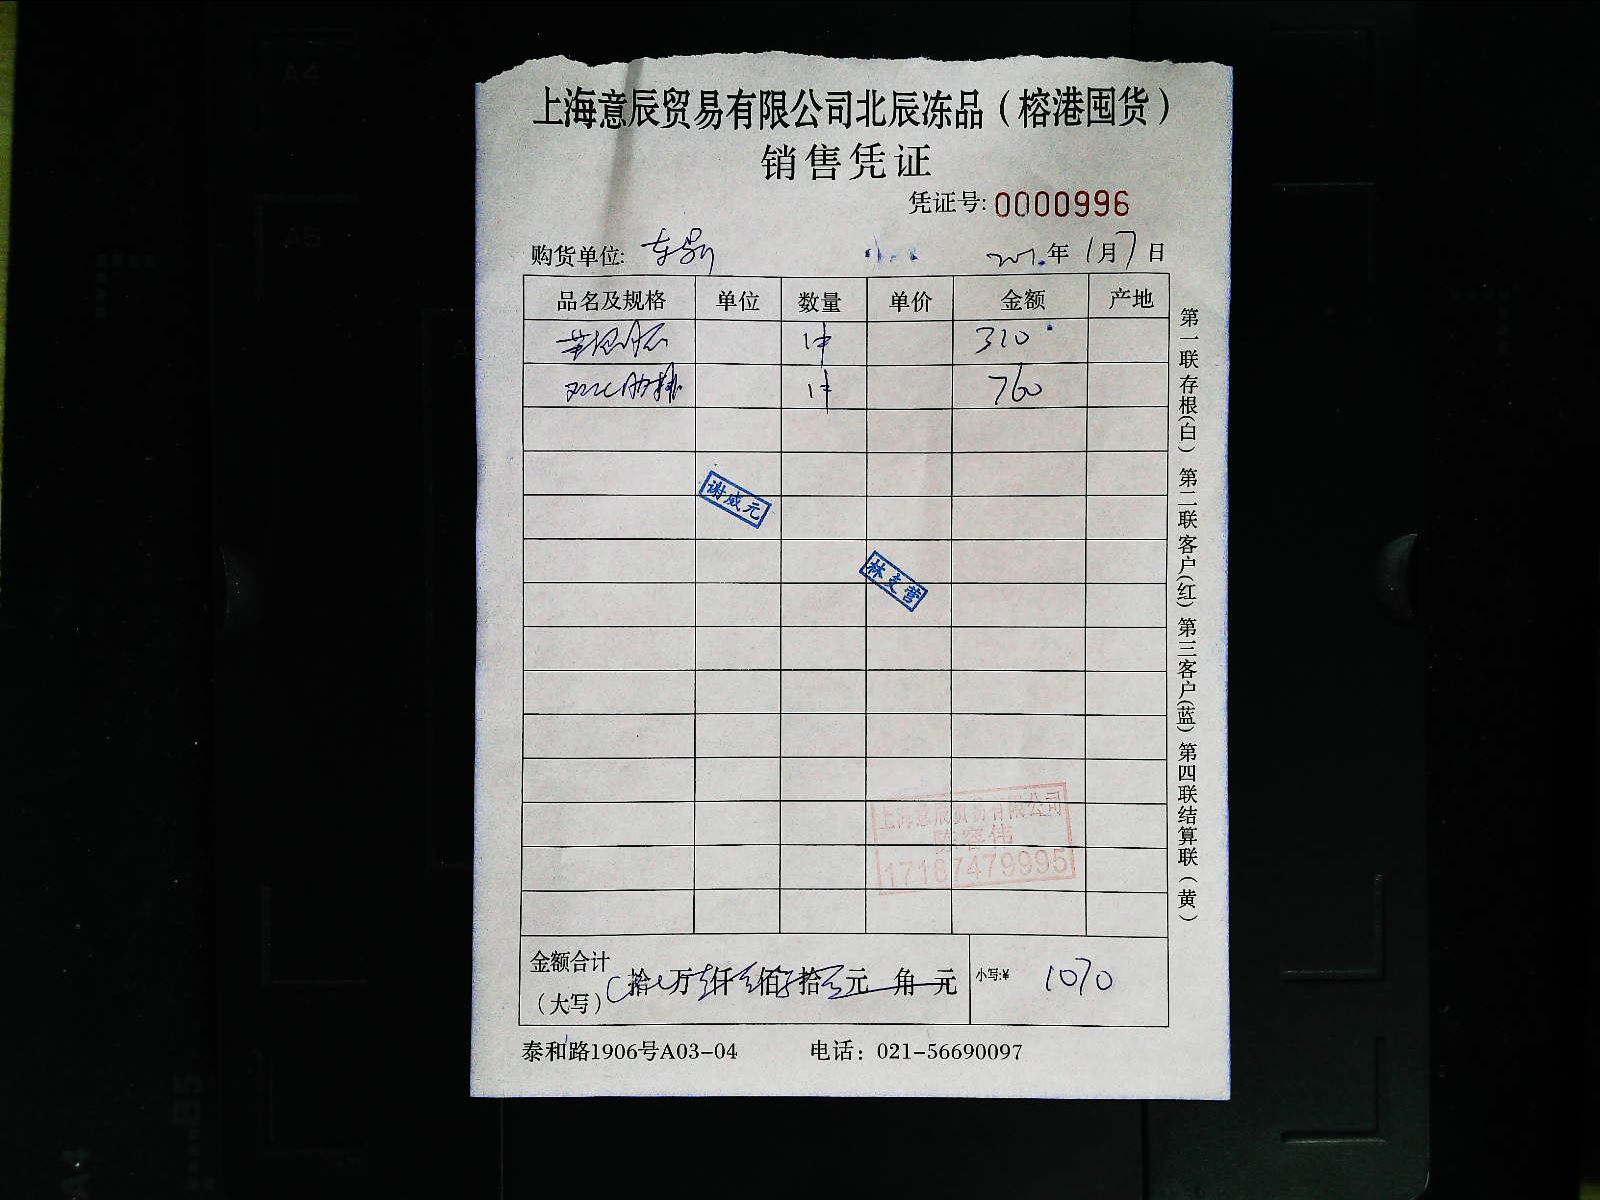 上海意辰贸易有限公司北辰冻品（榕港囤货）
销售凭证
凭证号: 0000996
购货单位: 年 1月7日
品名及规格 单位 数量 单价 金额 产地
1件 310
1件 760
谢威元
林支营
上海意辰贸易有限公司
陈容伟
17187479995
金额合计
（大写） 拾 万 仟 佰 拾 元 角 元 小写:¥ 1070
泰和路1906号A03-04 电话：021-56690097
第一联存根(白) 第二联客户(红) 第三客户(蓝) 第四联结算联（黄）
A4
A5
B5
A4